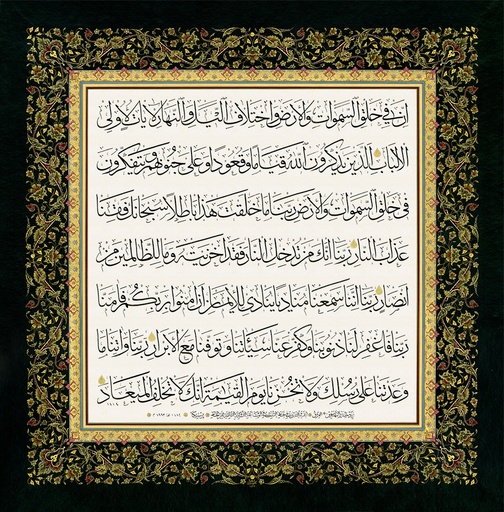 ان في خلق السموات والارض واختلاف اليل والنهار لايات لاولي
الالباب الذين يذكرون الله قياما وقعودا وعلى جنوبهم ويتفكرون
في خلق السموات والارض ربنا ما خلقت هذا باطلا سبحانك فقنا
عذاب النار ربنا انك من تدخل النار فقد اخزيته وما للظالمين من
انصار ربنا اننا سمعنا مناديا ينادي للايمان ان امنوا بربكم فامنا
ربنا فاغفر لنا ذنوبنا وكفر عنا سيئاتنا وتوفنا مع الابرار ربنا واتنا ما
وعدتنا على رسلك ولا تخزنا يوم القيمة انك لا تخلف الميعاد